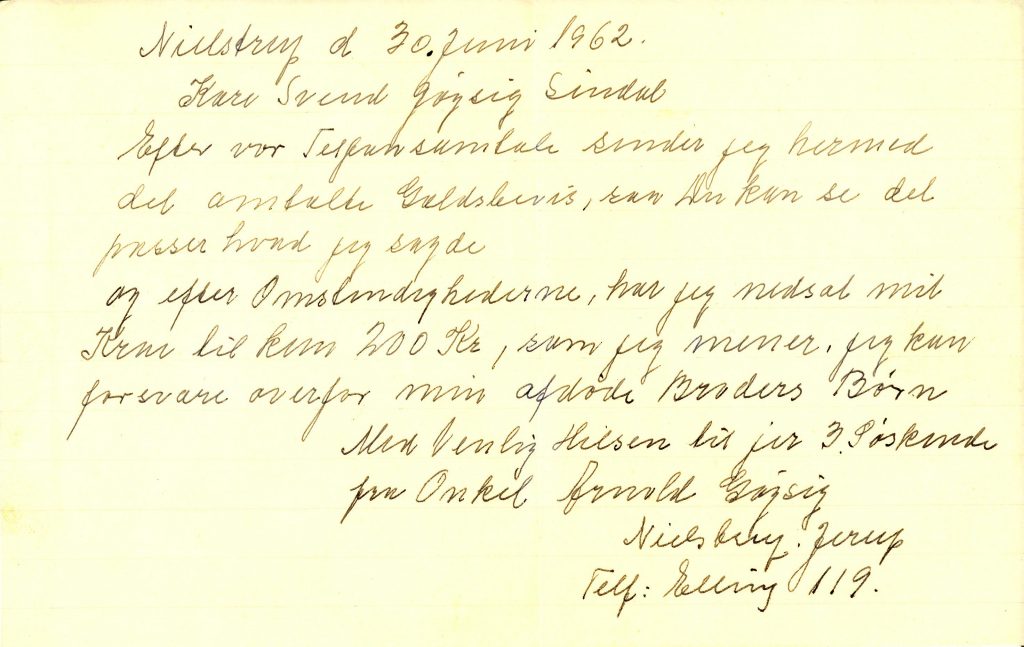 Nielstrup d 30. Juni 1962.
Kære Svend Gøgsig Sindal
Efter vor Telfonsamtale sender jeg hermed
det omtalte Gældsbevis, saa Du kan se det
passer hvad jeg sagde
og efter Omstendighederne, har jeg nedsat mit
Krav til kun 200 Kr, som jeg mener, jeg kan
forsvare overfor min afdøde Broders Børn
Med Venlig Hilsen til jer 3. Søskende
fra Onkel Arnold Gøgsig
Jerup
Telf: Elling 119.